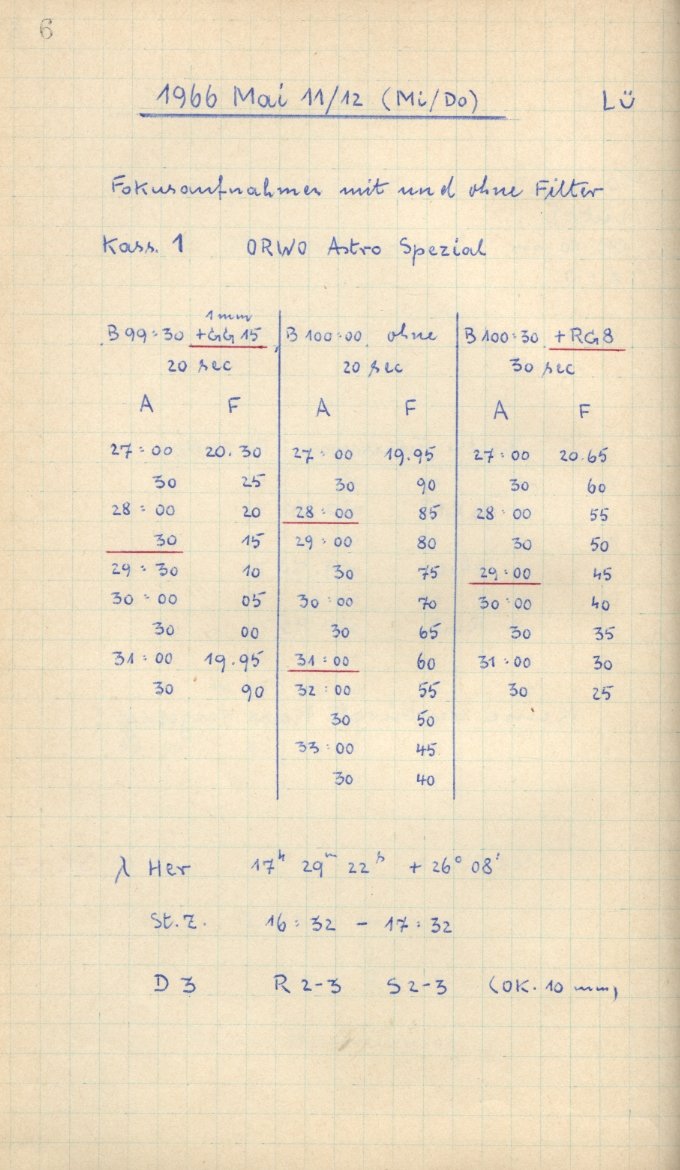 6
1966 Mai 11/12 (Mi/Do) LÜ
Fokusaufnahmen mit und ohne Filter
Kass. 1 ORWO Astro Spezial
1 mm
B 99:30 +GG 15, B 100:00, ohne B 100:30 +RG8
20 sec 20 sec 30 sec
A F A F A F
27:00 20.30 27:00 19.95 27:00 20.65
30 25 30 90 30 60
28:00 20 28:00 85 28:00 55
30 15 29:00 80 30 50
29:30 10 30 75 29:00 45
30:00 05 30:00 70 30:00 40
30 00 30 65 30 35
31:00 19.95 31:00 60 31:00 30
30 90 32:00 55 30 25
30 50
33:00 45
30 40
λ Her 17h 29m 22s + 26° 08'
St.Z. 16:32 - 17:32
D 3 R 2-3 S 2-3 (OK. 10 mm)